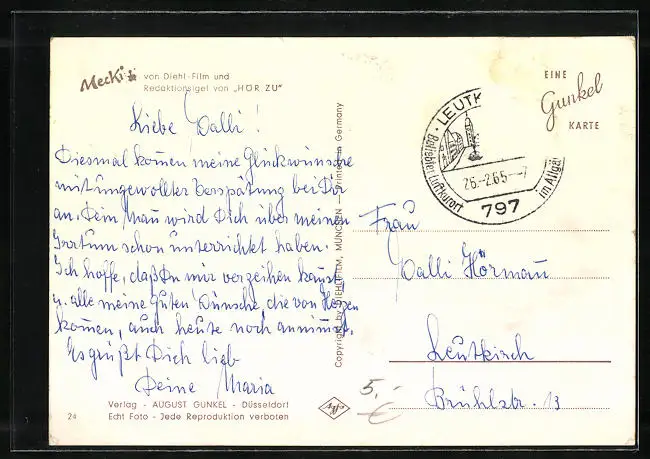 Mecki von Diehl-Film und
Redaktionsigel von „HÖR ZU"
Liebe Dalli!
Diesmal kommen meine Glückwünsche
mit ungewollter Verspätung bei Dir
an. Dein Mann wird Dich über meinen
Irrtum schon unterrichtet haben.
Ich hoffe, daß Du mir verzeihen kannst
u. alle meine guten Wünsche, die von Herzen
kommen, auch heute noch annimmst.
Es grüßt Dich lieb
Deine Maria
Verlag - AUGUST GUNKEL - Düsseldorf
24 Echt Foto - Jede Reproduktion verboten
Copyright by DIEHLFILM, MÜNCHEN — Printed in Germany
EINE
Gunkel
KARTE
LEUTK
Beliebter Luftkurort
im Allgä
26.-2.65.--7
797
Frau
Dalli Hörmann
Leutkirch
Brühlstr. 13
5,-
€